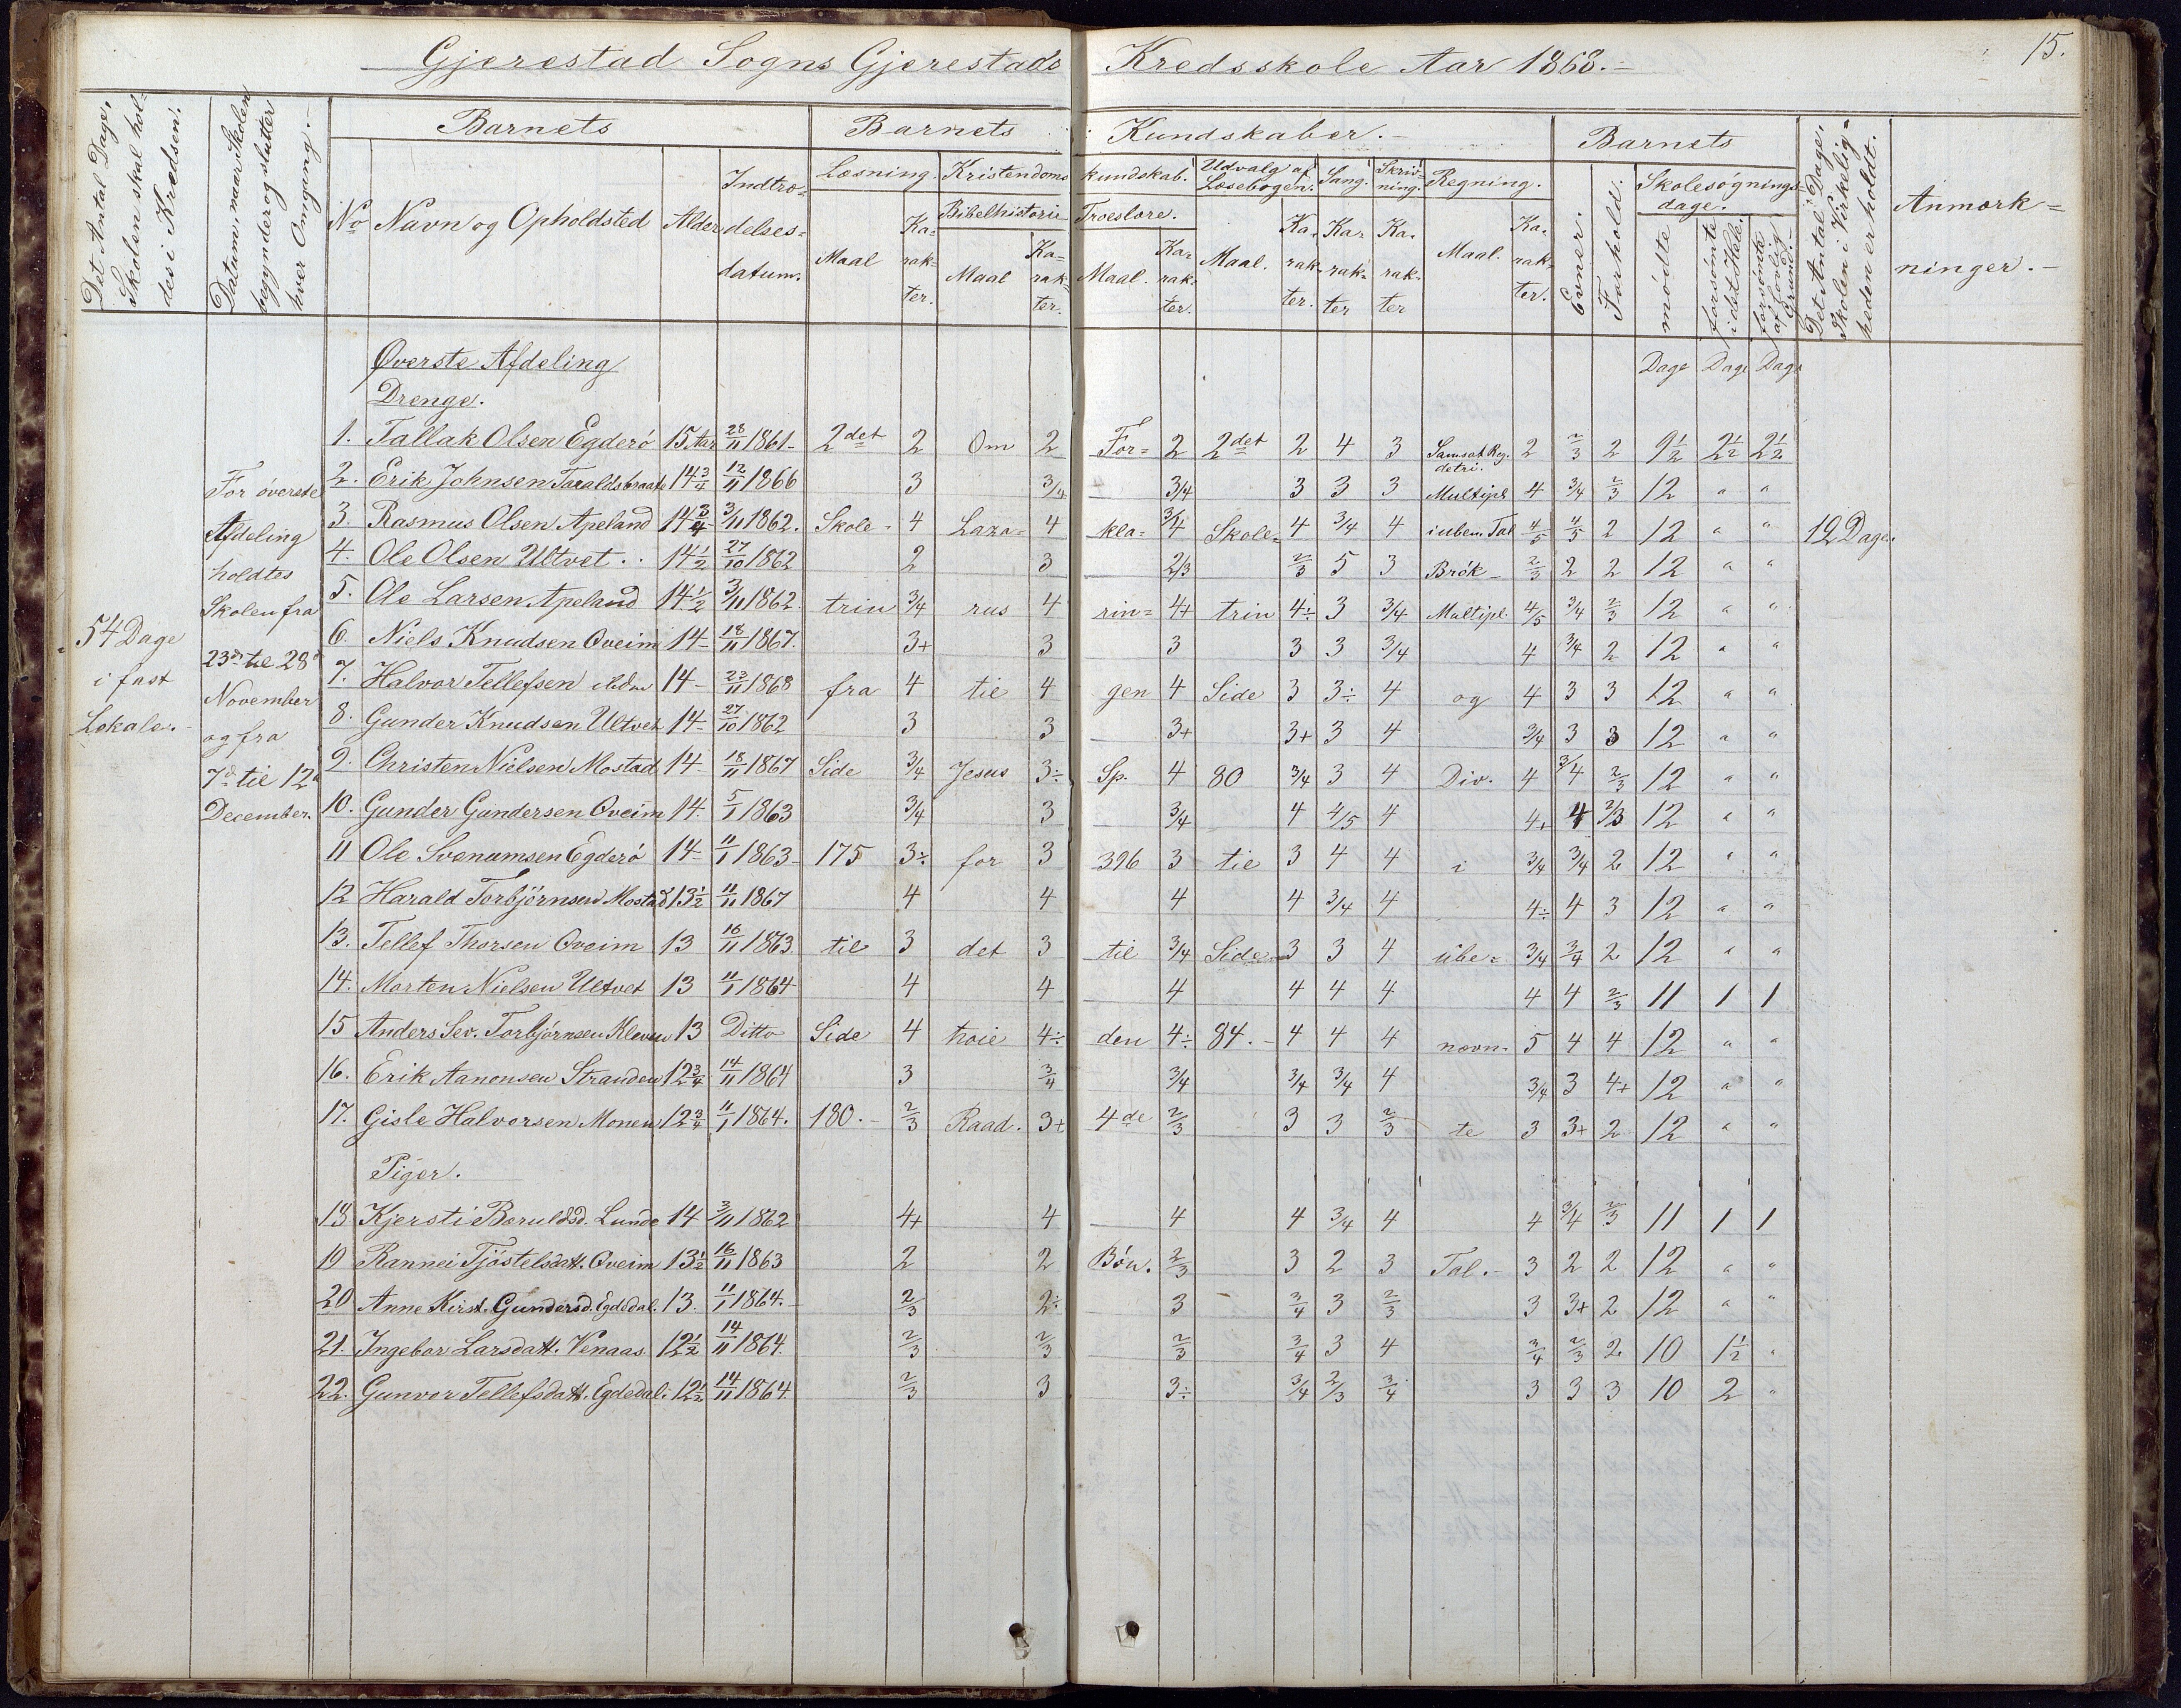 Gjerestad Sogns Gjerestads Kredsskole Aar 1868.-
15.
Det Antal Dage,
Skolen skal hol-
des i Kredsen.
Datum, naar Skolen
begynder og slutter
hver Omgang.-
Barnets
No Navn og Opholdsted Alder Indtræ-
delses-
datum.
Barnets Kundskaber.-
Læsning. Maal Ka-
rak-
ter.
Kristendoms kundskab.
Bibelhistorie Maal Ka-
rak-
ter.
Troeslære. Maal. Ka-
rak-
ter.
Udvalg af
Læsebogen. Maal. Ka-
rak-
ter.
Sang. Ka-
rak-
ter
Skriv-
ning. Ka-
rak-
ter
Regning. Maal. Ka-
rak-
ter.
Barnets
Evner.
Forhold.
Skolesøgnings-
dage.
mødte
forsømte
i det Hele.
forsømte
af lovlig
Grund.-
Det Antal Dage,
Skolen i Virkelig-
heden er holdt.
Anmærk-
ninger.-
Dage Dage Dage
54 Dage
i fast
Lokale.-
For øverste
Afdeling
holdtes
Skolen fra
23de til 28de
November
og fra
7de til 12te
December.
Øverste Afdeling
Drenge.
1. Tallak Olsen Egderö 15 Aar 28/11 1861- 2det 2 Om 2 For= 2 2det 2 4 3 Samsat Reg. detri. 2 2/3 2 9½ 2½ 2½
2. Erik Johnsen 14¾ 12/11 1866 3 3/4 3/4 3 3 3 Multipl 4 3/4 2/3 12 " "
3. Rasmus Olsen Apeland 14¾ 3/11 1862. Skole- 4 Laza= 4 kla= 3/4 Skole= 4 3/4 4 i ubem. Tal 4/5 4/5 2 12 " " 12 Dage.
4. Ole Olsen Ultvet.. 14½ 27/10 1862 2 3 2/3 2/3 5 3 Brök- 2/3 2 2 12 " "
5. Ole Larsen Apeland 14½ 3/11 1862. trin 3/4 rus 4 rin= 4+ trin 4÷ 3 3/4 Multipl. 4/5 3/4 2/3 12 " "
6. Niels Knudsen Oveim 14- 18/11 1867. 3+ 3 3 3 3 3/4 4 3/4 2 12 " "
7. Halvor Tellefsen ibidm 14- 23/11 1868 fra 4 til 4 gen 4 Side 3 3÷ 4 og 4 3 3 12 " "
8. Gunder Knudsen Ultvet 14- 27/10 1862 3 3 3+ 3+ 3 4 3/4 3 3 12 " "
9. Christen Nielsen Mostad 14- 18/11 1867 Side 3/4 Jesus 3÷ Sp. 4 80 3/4 3 4 Div. 4 3/4 2/3 12 " "
10. Gunder Gundersen Oveim 14. 5/1 1863 3/4 3 3/4 4 4/5 4 4+ 4 2/3 12 " "
11 Ole Svenumsen Egderö 14- 11/1 1863- 175 3÷ for 3 396 3 til 3 4 4 i 3/4 3/4 2 12 " "
12 Harald Torbjörnsen Mostad 13½ 11/11 1867 4 4 4 4 3/4 4 4÷ 4 3 12 " "
13. Tellef Thorsen Oveim 13 16/11 1863. til 3 det 3 til 3/4 Side 3 3 4 ube= 3/4 3/4 2 12 " "
14. Morten Nielsen Ultvet 13 11/1 1864 4 4 4 4 4 4 4 4 2/3 11 1 1
15 Anders Sev. Torbjörnsen Kleven 13 Ditto Side 4 höie 4÷ den 4÷ 84.- 4 4 4 nævn- 5 4 4 12 " "
16. Erik Aanonsen Stranden 12¾ 14/11 1864 3 3/4 3/4 3/4 3/4 4 3/4 3 4+ 12 " "
17. Gisle Halvorsen Monen 12¾ 11/1 1864. 180.- 2/3 Raad. 3+ 4de 2/3 3 3 2/3 te 3 3+ 2 12 " "
Piger.
18 Kjersti Beruldsd. Lunde 14 3/11 1862 4+ 4 4 4 3/4 4 4 3/4 2/3 11 1 1
19 Rannei Tjöstelsdatt. Oveim 13½ 16/11 1863 2 2 Bön. 2/3 3 2 3 Tal.- 3 2 2 12 " "
20 Anne Kirst. Gundersd. Egdedal. 13. 11/1 1864.- 2/3 2÷ 3 3/4 3 2/3 3 3+ 2 12 " "
21. Ingebor Larsdatt. Venaas 12½ 14/11 1864. 2/3 2/3 2/3 3/4 3 4 3/4 2/3 2 10 1½ "
22. Gunvor Tellefsdatt. Egdedal. 12½ 14/11 1864. 2/3 3 3÷ 3/4 2/3 3/4 3 3 3 10 2 "